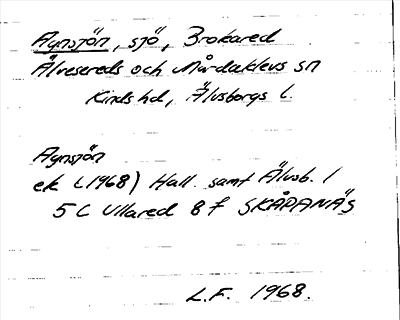 Agnsjön, sjö, Brokared
Älvsereds och Mårdaklevs sn
Kinds hd, Älvsborgs l.
Agnsjön
ek (1968) Hall. samt Älvsb. l
5 C Ullared 8 f SKÅPANÄS
L.F. 1968.